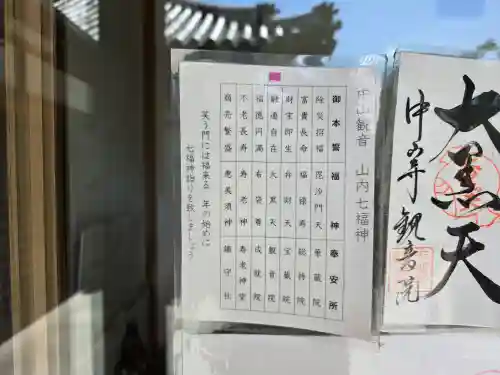 中山観音 山内七福神
御本誓 福神 奉安所
除災招福 毘沙門天 華蔵院
富貴長命 福禄寿 総持院
財宝即生 弁財天 宝蔵院
融通自在 大黒天 観音院
福徳円満 布袋尊 成就院
不老長寿 寿老神 寿老神堂
商売繁盛 恵美須神 鎮守社
笑う門には福来る 年の始めに
七福神詣りを致しましょう
大黒天
中山寺観音院